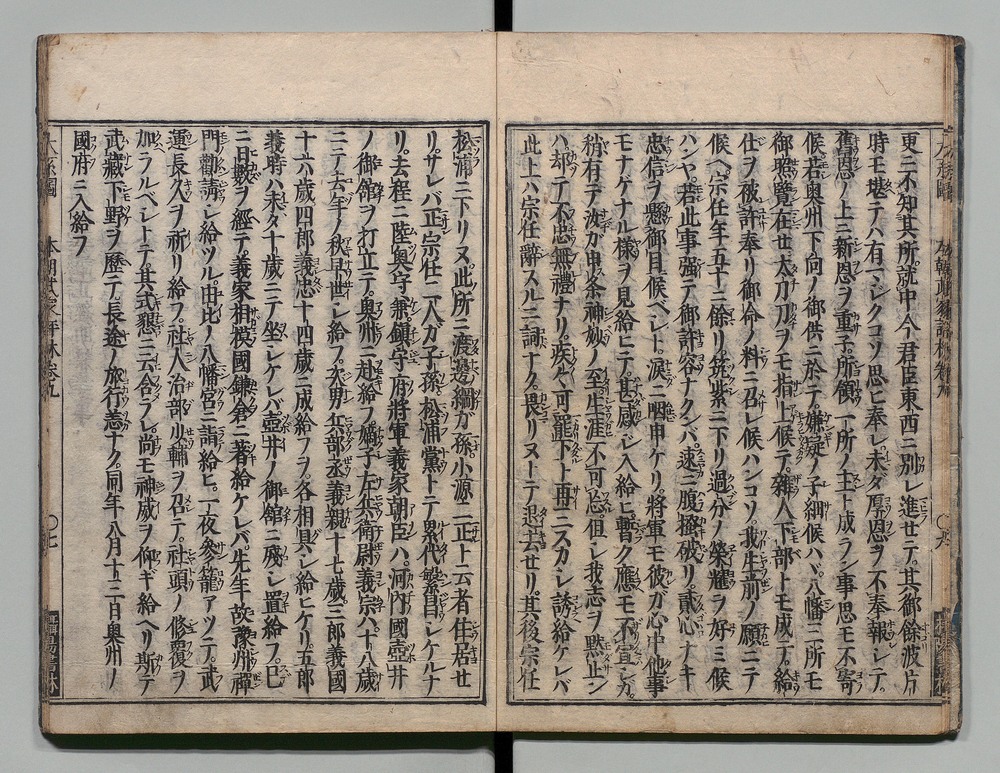 更ニ不知其所。就中今君臣東西ニ別レ進セテ。其御餘波片
時モ堪テハ有マシクコソ思ヒ奉レ未タ厚恩ヲ不奉報シテ。
舊恩ノ上ニ新恩ヲ重子。所領一所ノ主ト成ラン事思モ不寄
候若奥州下向ノ御供ニ於テ嫌疑ノ子細候ハヾ。八幡三所モ
御照覽在世太刀刀ヲモ指上候テ。雜人下部トモ成テ。給
仕ヲ被許奉リ御命ノ料ニ召レ候ハンコソ。我生前ノ願ニテ
候ヘ宗任年五十ニ餘リ。筑紫ニ下リ過分ノ榮耀ヲ好ミ候
ハンヤ。若此事強テ御許容ナクンバ。速ニ腹搔破リ。貳心ナキ
忠信ヲ懸御目候ベシト。涙ニ咽申ケリ。將軍モ彼ガ心中他事
モナゲナル樣ヲ見給ヒテ。甚感シ入給ヒ。暫ク應モ不宣シガ。
稍有テ汝カ申条神妙ノ至生涯不可忘但シ我志ヲ黙止ン
ハ。却テ不忠無禮ナリ。疾々可罷下ト再三スカシ誘給ケレバ
此上ハ宗任辭スルニ詞ナク。畏リヌトテ退去セリ。其後宗任
松浦ニ下リヌ此所ニ渡邊綱ガ孫小源二正ト云者住居セ
リ。サレバ正宗任二人ガ子孫。松浦黨トテ累代繁昌シケルナ
リ。去程ニ陸奥守兼鎭守府將軍義家朝臣ハ。河内國壺井
ノ御館ヲ打立テ。奥州ニ赴給フ嫡子左兵衛尉義宗ハ十八歳
ニテ去年ノ秋早世シ給フ。次男兵部丞義親十七歳三郎義國
十六歳四郎義忠十四歳ニ成給フヲ。各相具シ給ヒケリ。五郎
義時ハ未タ十歳ニテ坐シケレバ壺井ノ御館ニ殘シ置給フ。巳
ニ日數ヲ經テ。義家相模國鎌倉ニ著給ケレバ先年故豫州禪
門勸請シ給ツル。由比ノ八幡宮ニ詣給ヒ。一夜參籠アツテ。武
運長久ヲ祈リ給フ。社人治部少輔ヲ召テ。社頭ノ修覆ヲ
加ラルベシトテ其式懇ニ云含ラル。尚モ神威ヲ仰ギ給ヘリ斯テ
武藏下野ヲ歴テ。長途ノ旅行恙ナク。同年八月十三日奥州ノ
國府ニ入給フ